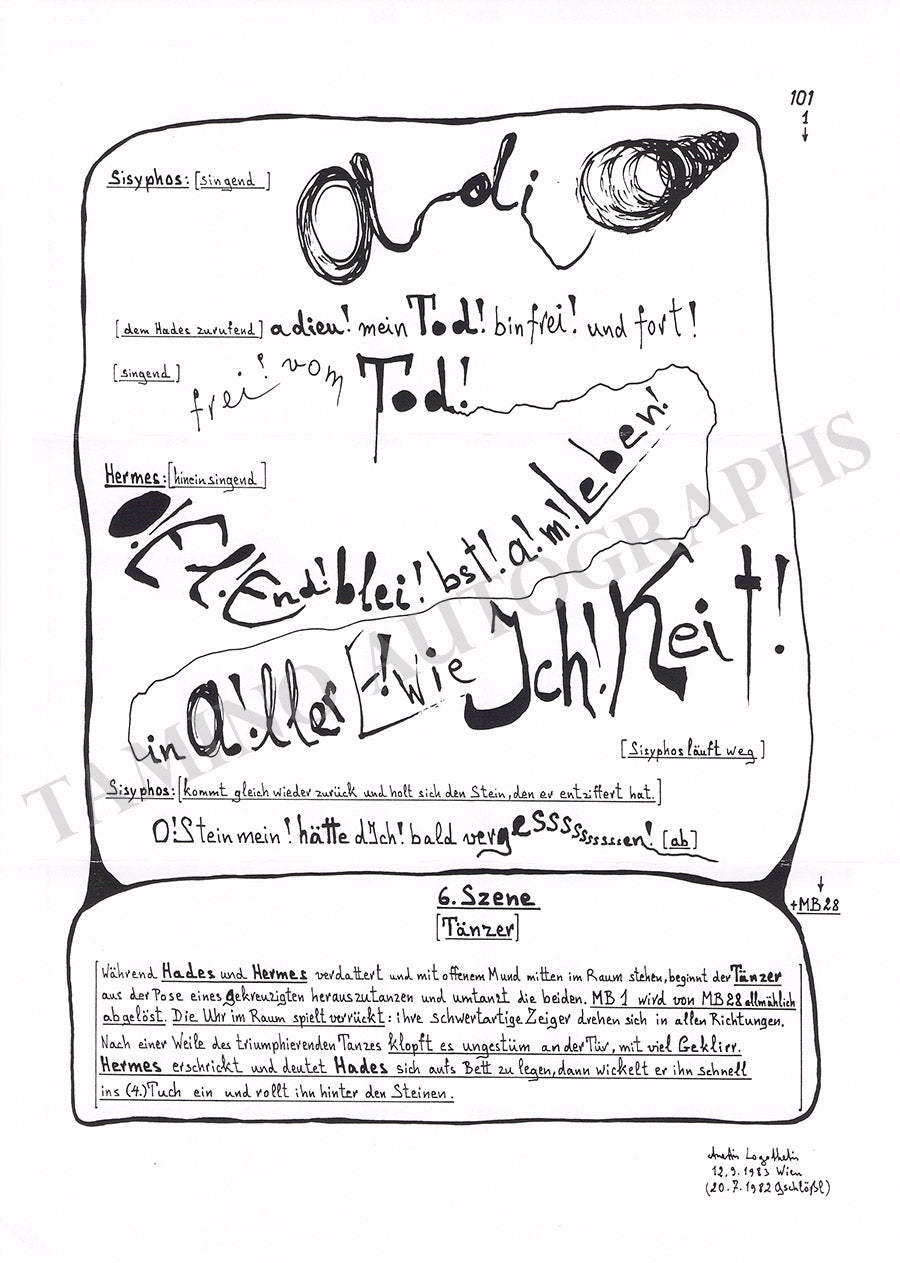 101
1
↓
Sisyphos: [singend]
adi
[dem Hades zurufend] adieu! mein Tod! bin frei! und fort!
[singend] frei! vom Tod!
Hermes: [hineinsingend]
O! El! End! blei! bst! a! m! Leben!
in A! ller ! wie Ich! Keit!
[Sisyphos läuft weg]
Sisyphos: [kommt gleich wieder zurück und holt sich den Stein, den er entziffert hat.]
O! Stein mein! hätte dIch! bald vergessssssssssen! [ab]
↓
+MB28
6. Szene
[Tänzer]
[Während Hades und Hermes verdattert und mit offenem Mund mitten im Raum stehen, beginnt der Tänzer
aus der Pose eines Gekreuzigten herauszutanzen und umtanzt die beiden. MB 1 wird von MB 28 allmählich
abgelöst. Die Uhr im Raum spielt verrückt: ihre schwertartige Zeiger drehen sich in allen Richtungen.
Nach einer Weile des triumphierenden Tanzes klopft es ungestüm an der Tür, mit viel Geklirr.
Hermes erschrickt und deutet Hades sich aufs Bett zu legen, dann wickelt er ihn schnell
ins (4.) Tuch ein und rollt ihn hinter den Steinen.]
Anestis Logothetis
12.9.1983 Wien
(20.7.1982 Gschlößl)
TAMINO AUTOGRAPHS